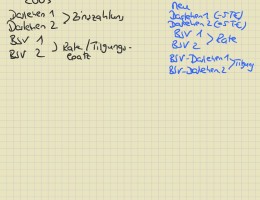 2005
Darlehen 1 > Zinszahlung
Darlehen 2
BSV 1 > Rate / Tilgungs-
BSV 2
neu
Darlehen 1 (-5 T€)
Darlehen 2 (-5 T€)
BSV 1 > Rate
BSV 2
BSV-Darlehen 1 > Tilgung
BSV-Darlehen 2